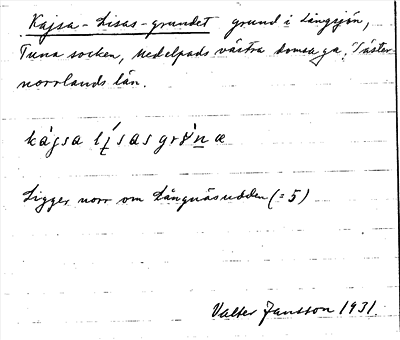 Kajsa-Lisas-grundet grund i Långsjön,
Tuna socken, Medelpads västra domsaga, Väster-
norrlands län.
kàjsa lí̜sasgrɤ̀n̲æ
Ligger norr om Långnäsudden (=5)
Valter Jansson 1931.